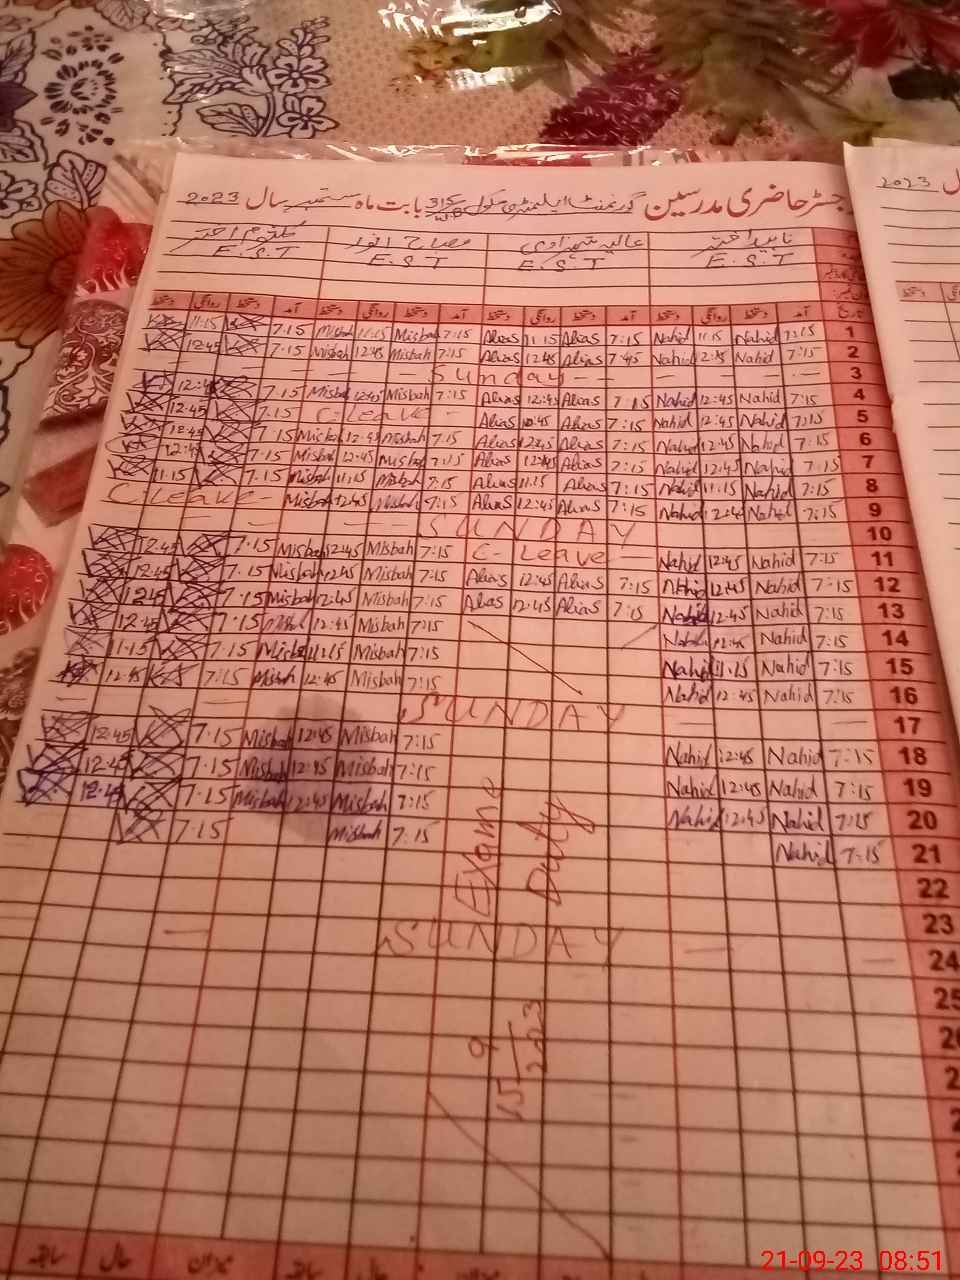 رجسٹر حاضری مدرسین گورنمنٹ ایلیمنٹری سکول 315/WB بابت ماہ ستمبر سال 2023
2023
ناہید اختر عالیہ شہزادی مصباح انور کلثوم اختر
E.S.T E.S.T E.S.T E.S.T
تاریخ آمد دستخط روانگی دستخط آمد دستخط روانگی دستخط آمد دستخط روانگی دستخط آمد دستخط روانگی دستخط
11:15 7:15 Misbah 11:15 Misbah 7:15 Alias 11:15 Alias 7:15 Nahid 11:15 Nahid 7:15 1
12:45 7:15 Misbah 12:45 Misbah 7:15 Alias 12:45 Alias 7:45 Nahid 12:45 Nahid 7:15 2
Sunday 3
12:45 7:15 Misbah 12:45 Misbah 7:15 Alias 12:45 Alias 7:15 Nahid 12:45 Nahid 7:15 4
12:45 7:15 C-Leave Alias 12:45 Alias 7:15 Nahid 12:45 Nahid 7:15 5
12:45 7:15 Misbah 12:45 Misbah 7:15 Alias 12:45 Alias 7:15 Nahid 12:45 Nahid 7:15 6
12:45 7:15 Misbah 12:45 Misbah 7:15 Alias 12:45 Alias 7:15 Nahid 12:45 Nahid 7:15 7
11:15 7:15 Misbah 11:15 Misbah 7:15 Alias 11:15 Alias 7:15 Nahid 11:15 Nahid 7:15 8
C-Leave Misbah 12:45 Misbah 7:15 Alias 12:45 Alias 7:15 Nahid 12:45 Nahid 7:15 9
SUNDAY 10
12:45 7:15 Misbah 12:45 Misbah 7:15 C-Leave Nahid 12:45 Nahid 7:15 11
12:45 7:15 Misbah 12:45 Misbah 7:15 Alias 12:45 Alias 7:15 Nahid 12:45 Nahid 7:15 12
12:45 7:15 Misbah 12:45 Misbah 7:15 Alias 12:45 Alias 7:15 Nahid 12:45 Nahid 7:15 13
12:45 7:15 Misbah 12:45 Misbah 7:15 Nahid 12:45 Nahid 7:15 14
11:15 7:15 Misbah 11:15 Misbah 7:15 Nahid 11:15 Nahid 7:15 15
12:45 7:15 Misbah 12:45 Misbah 7:15 Nahid 12:45 Nahid 7:15 16
SUNDAY 17
12:45 7:15 Misbah 12:45 Misbah 7:15 Nahid 12:45 Nahid 7:15 18
12:45 7:15 Misbah 12:45 Misbah 7:15 Nahid 12:45 Nahid 7:15 19
12:45 7:15 Misbah 12:45 Misbah 7:15 Nahid 12:45 Nahid 7:15 20
7:15 Misbah 7:15 Nahid 7:15 21
Exame
Duty
22
23
SUNDAY 24
25
15/9
2023
میزان حال سابقہ
21-09-23 08:51